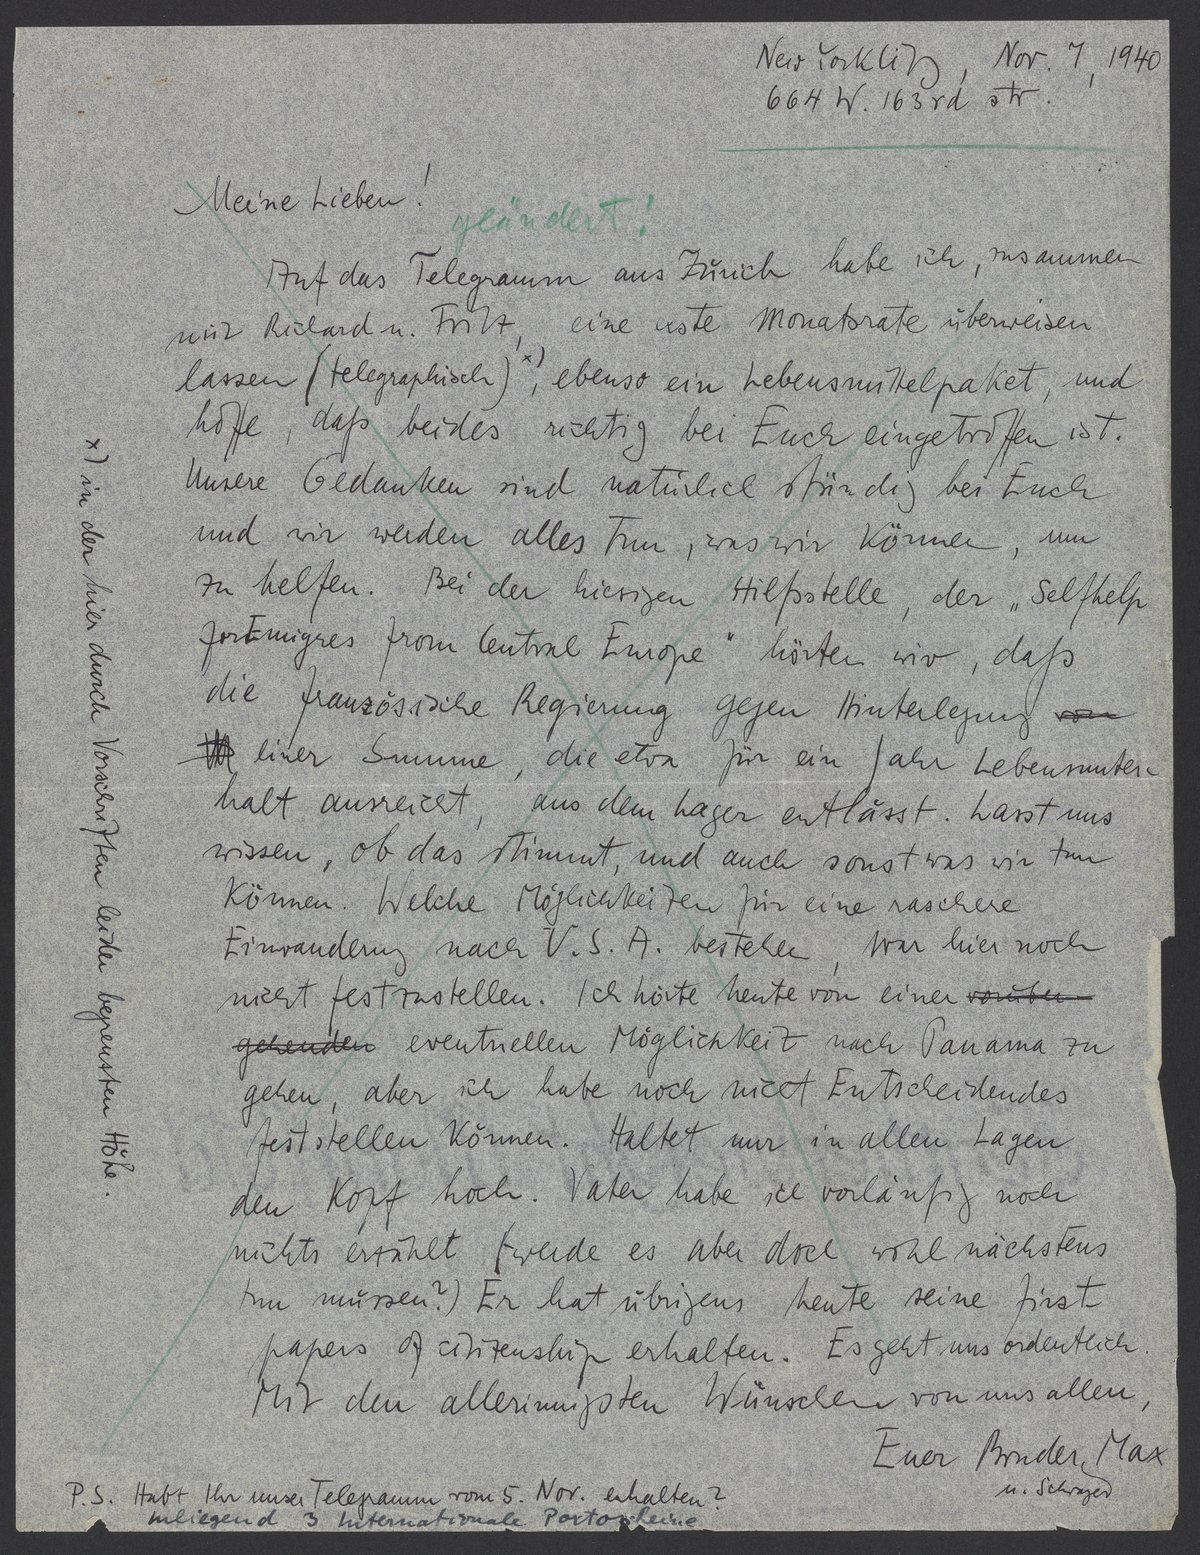 New York City, Nov. 7, 1940
664 W. 163rd str.
Meine Lieben!
geändert!
Auf das Telegramm aus Zürich habe ich, zusammen
mit Richard u. Fritz, eine erste Monatsrate überweisen
lassen (telegraphisch)x), ebenso ein Lebensmittelpaket, und
hoffe, daß beides richtig bei Euch eingetroffen ist.
Unsere Gedanken sind natürlich ständig bei Euch
und wir werden alles tun, was wir können, um
zu helfen. Bei der hiesigen Hilfsstelle, der „Selfhelp
for Emigres from Central Europe" hörten wir, daß
die französische Regierung gegen Hinterlegung von
einer Summe, die etwa für ein Jahr Lebensunter-
halt ausreicht, aus dem Lager entlässt. Lasst uns
wissen, ob das stimmt, und auch sonst was wir tun
können. Welche Möglichkeiten für eine raschere
Einwanderung nach U.S.A. bestehen, war hier noch
nicht festzustellen. Ich hörte heute von einer vorüber-
gehenden eventuellen Möglichkeit nach Panama zu
gehen, aber ich habe noch nicht Entscheidendes
feststellen können. Haltet nur in allen Lagen
den Kopf hoch. Vater habe ich vorläufig noch
nichts erzählt (werde es aber doch wohl nächstens
tun müssen?) Er hat übrigens heute seine first
papers of citizenship erhalten. Es geht uns ordentlich.
Mit den allerinnigsten Wünschen von uns allen,
Euer Bruder, Max
u. Schwager
P.S. Habt Ihr unser Telegramm vom 5. Nov. erhalten?
Inliegend 3 Internationale Portoscheine
x) in der hier durch Vorschriften leider begrenzten Höhe.